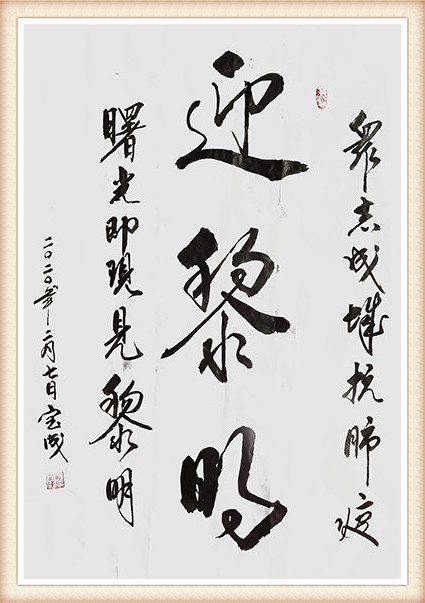 眾志成城抗肺疫
迎黎明
曙光即現見黎明
二〇二〇年二月七日 宝成